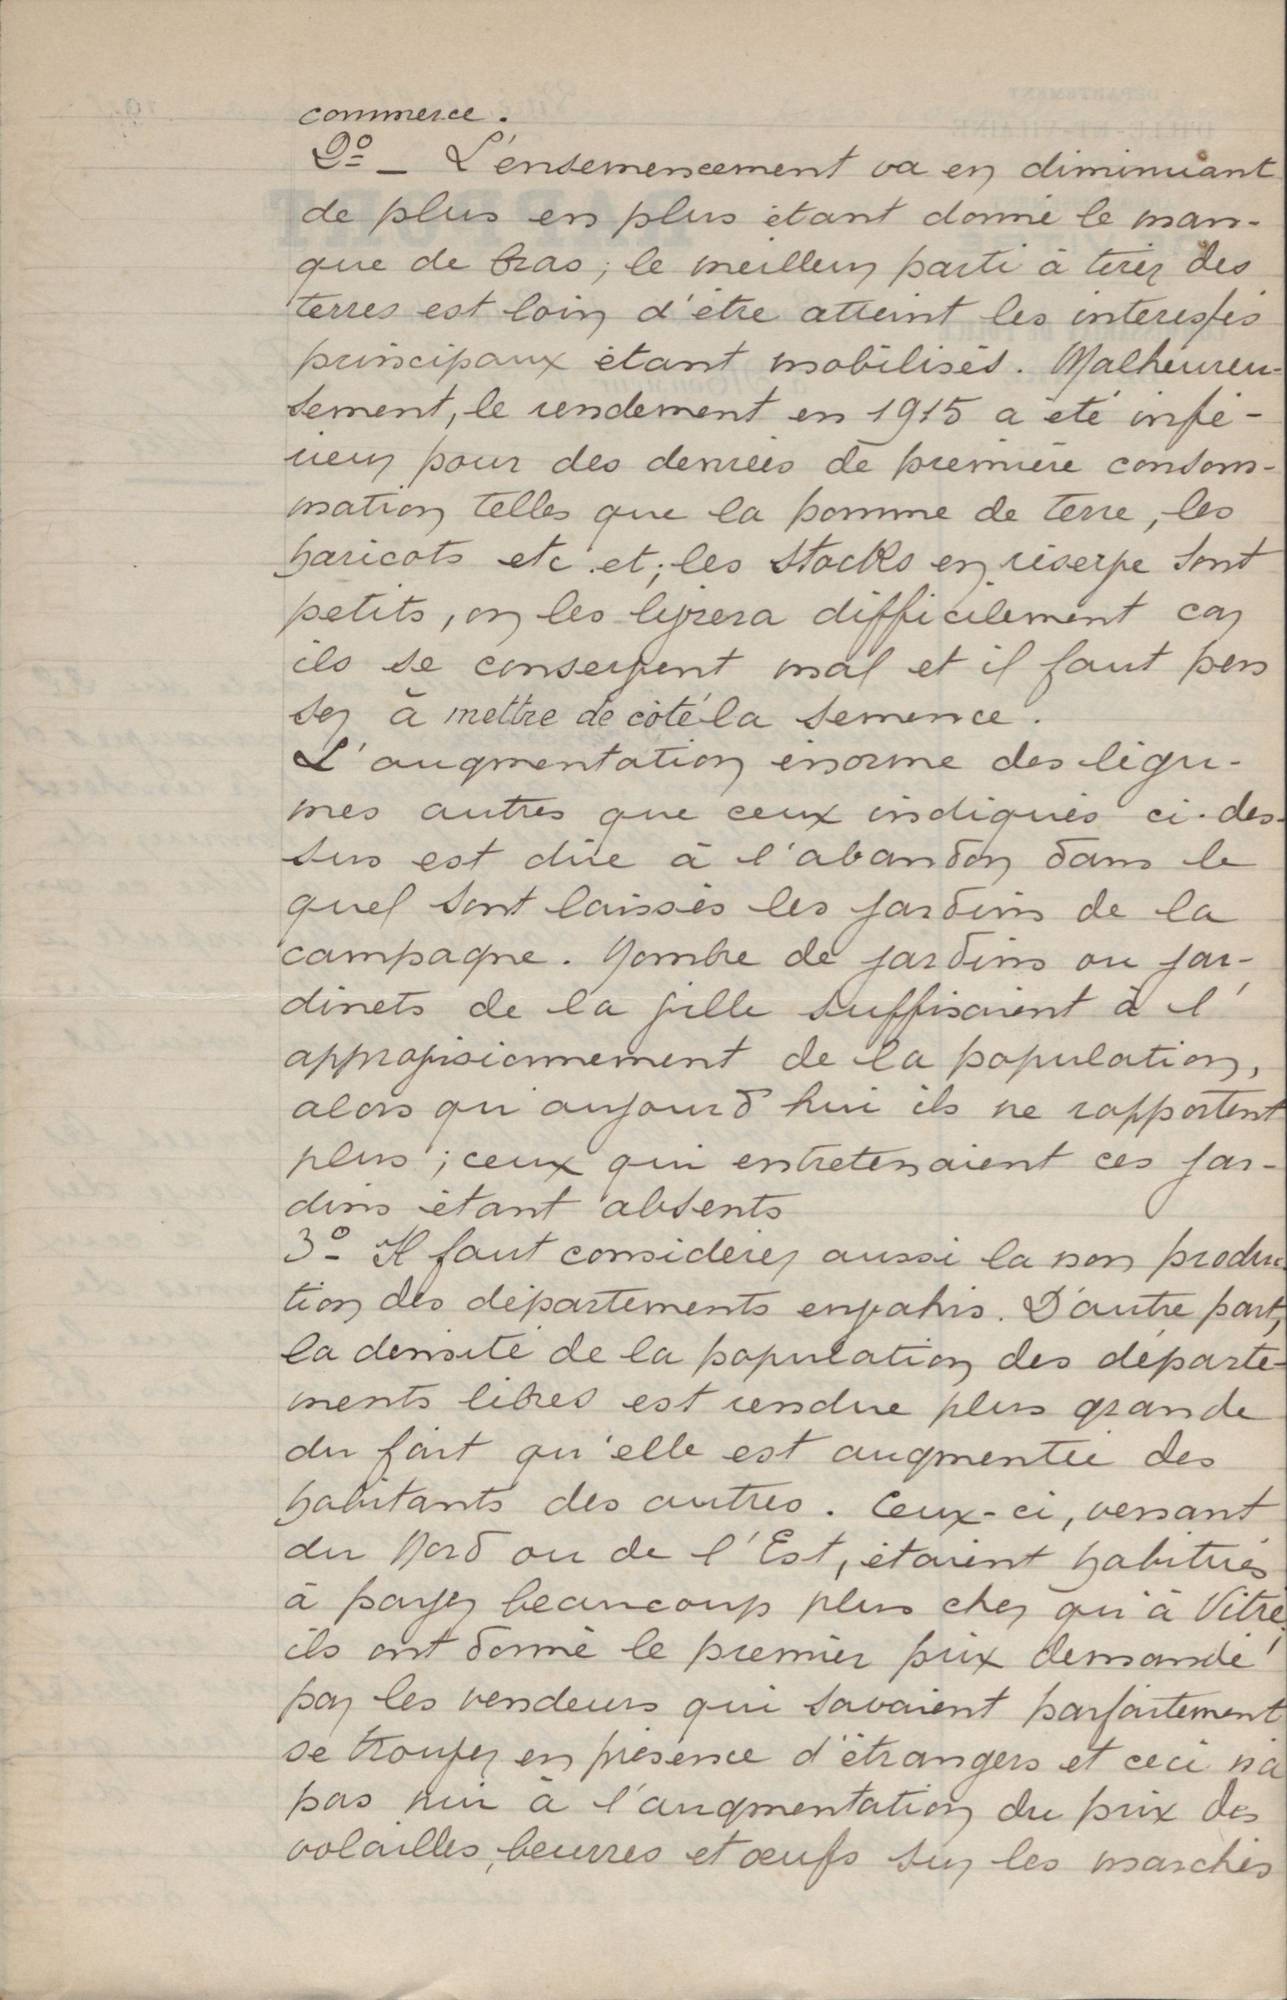 commerce.
2º – L'ensemencement va en diminuant
de plus en plus étant donné le man-
que de bras ; le meilleur parti à tirer des
terres est loin d'être atteint les intéressés
principaux étant mobilisés. Malheureu-
sement, le rendement en 1915 a été infé-
rieur pour des denrées de première consom-
mation telles que la pomme de terre, les
haricots etc. et ; les stocks en réserve sont
petits, on les livrera difficilement car
ils se conservent mal et il faut pen
ser à mettre de côté la semence.
L'augmentation énorme des légu-
mes autres que ceux indiqués ci-des-
sus est dûe à l'abandon dans le
quel sont laissés les jardins de la
campagne. Nombre de jardins ou jar-
dinets de la ville suffisaient à l'
approvisionnement de la population,
alors qu'aujourd'hui ils ne rapportent
plus ; ceux qui entretenaient ces jar-
dins étant absents
3º – Il faut considérer aussi la non produc
tion des départements envahis. D'autre part,
la densité de la population des départe-
ments libres est rendue plus grande
du fait qu'elle est augmentée des
habitants des autres. Ceux-ci, venant
du Nord ou de l'Est, étaient habitués
à payer beaucoup plus cher qu'à Vitré,
ils ont donné le premier prix demandé
par les vendeurs qui savaient parfaitement
se trouver en présence d'étrangers et ceci n'a
pas nui à l'augmentation du prix des
volailles, beurres et œufs sur les marchés